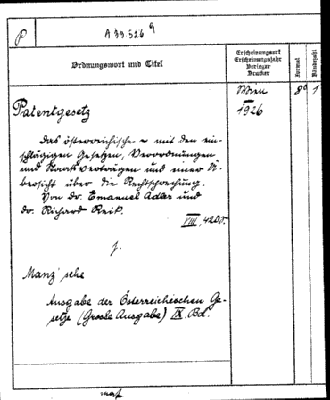 P
A 39.526 9
Ordnungswort und Titel
Erscheinungsort
Erscheinungsjahr
Verleger
Drucker
Format
Bändezahl
Wien
1926
8° 1
Patentgesetz
Das österreichische – mit den ein-
schlägigen Gesetzen, Verordnungen
und Staatsverträgen und einer Ü-
bersicht über die Rechtsprechung.
Von Dr. Emanuel Adler und
Dr. Richard Reik.
VIII, 420 S.
f.
Manz'sche
Ausgabe der Österreichischen Ge-
setze (Grosse Ausgabe) IX. Bd.